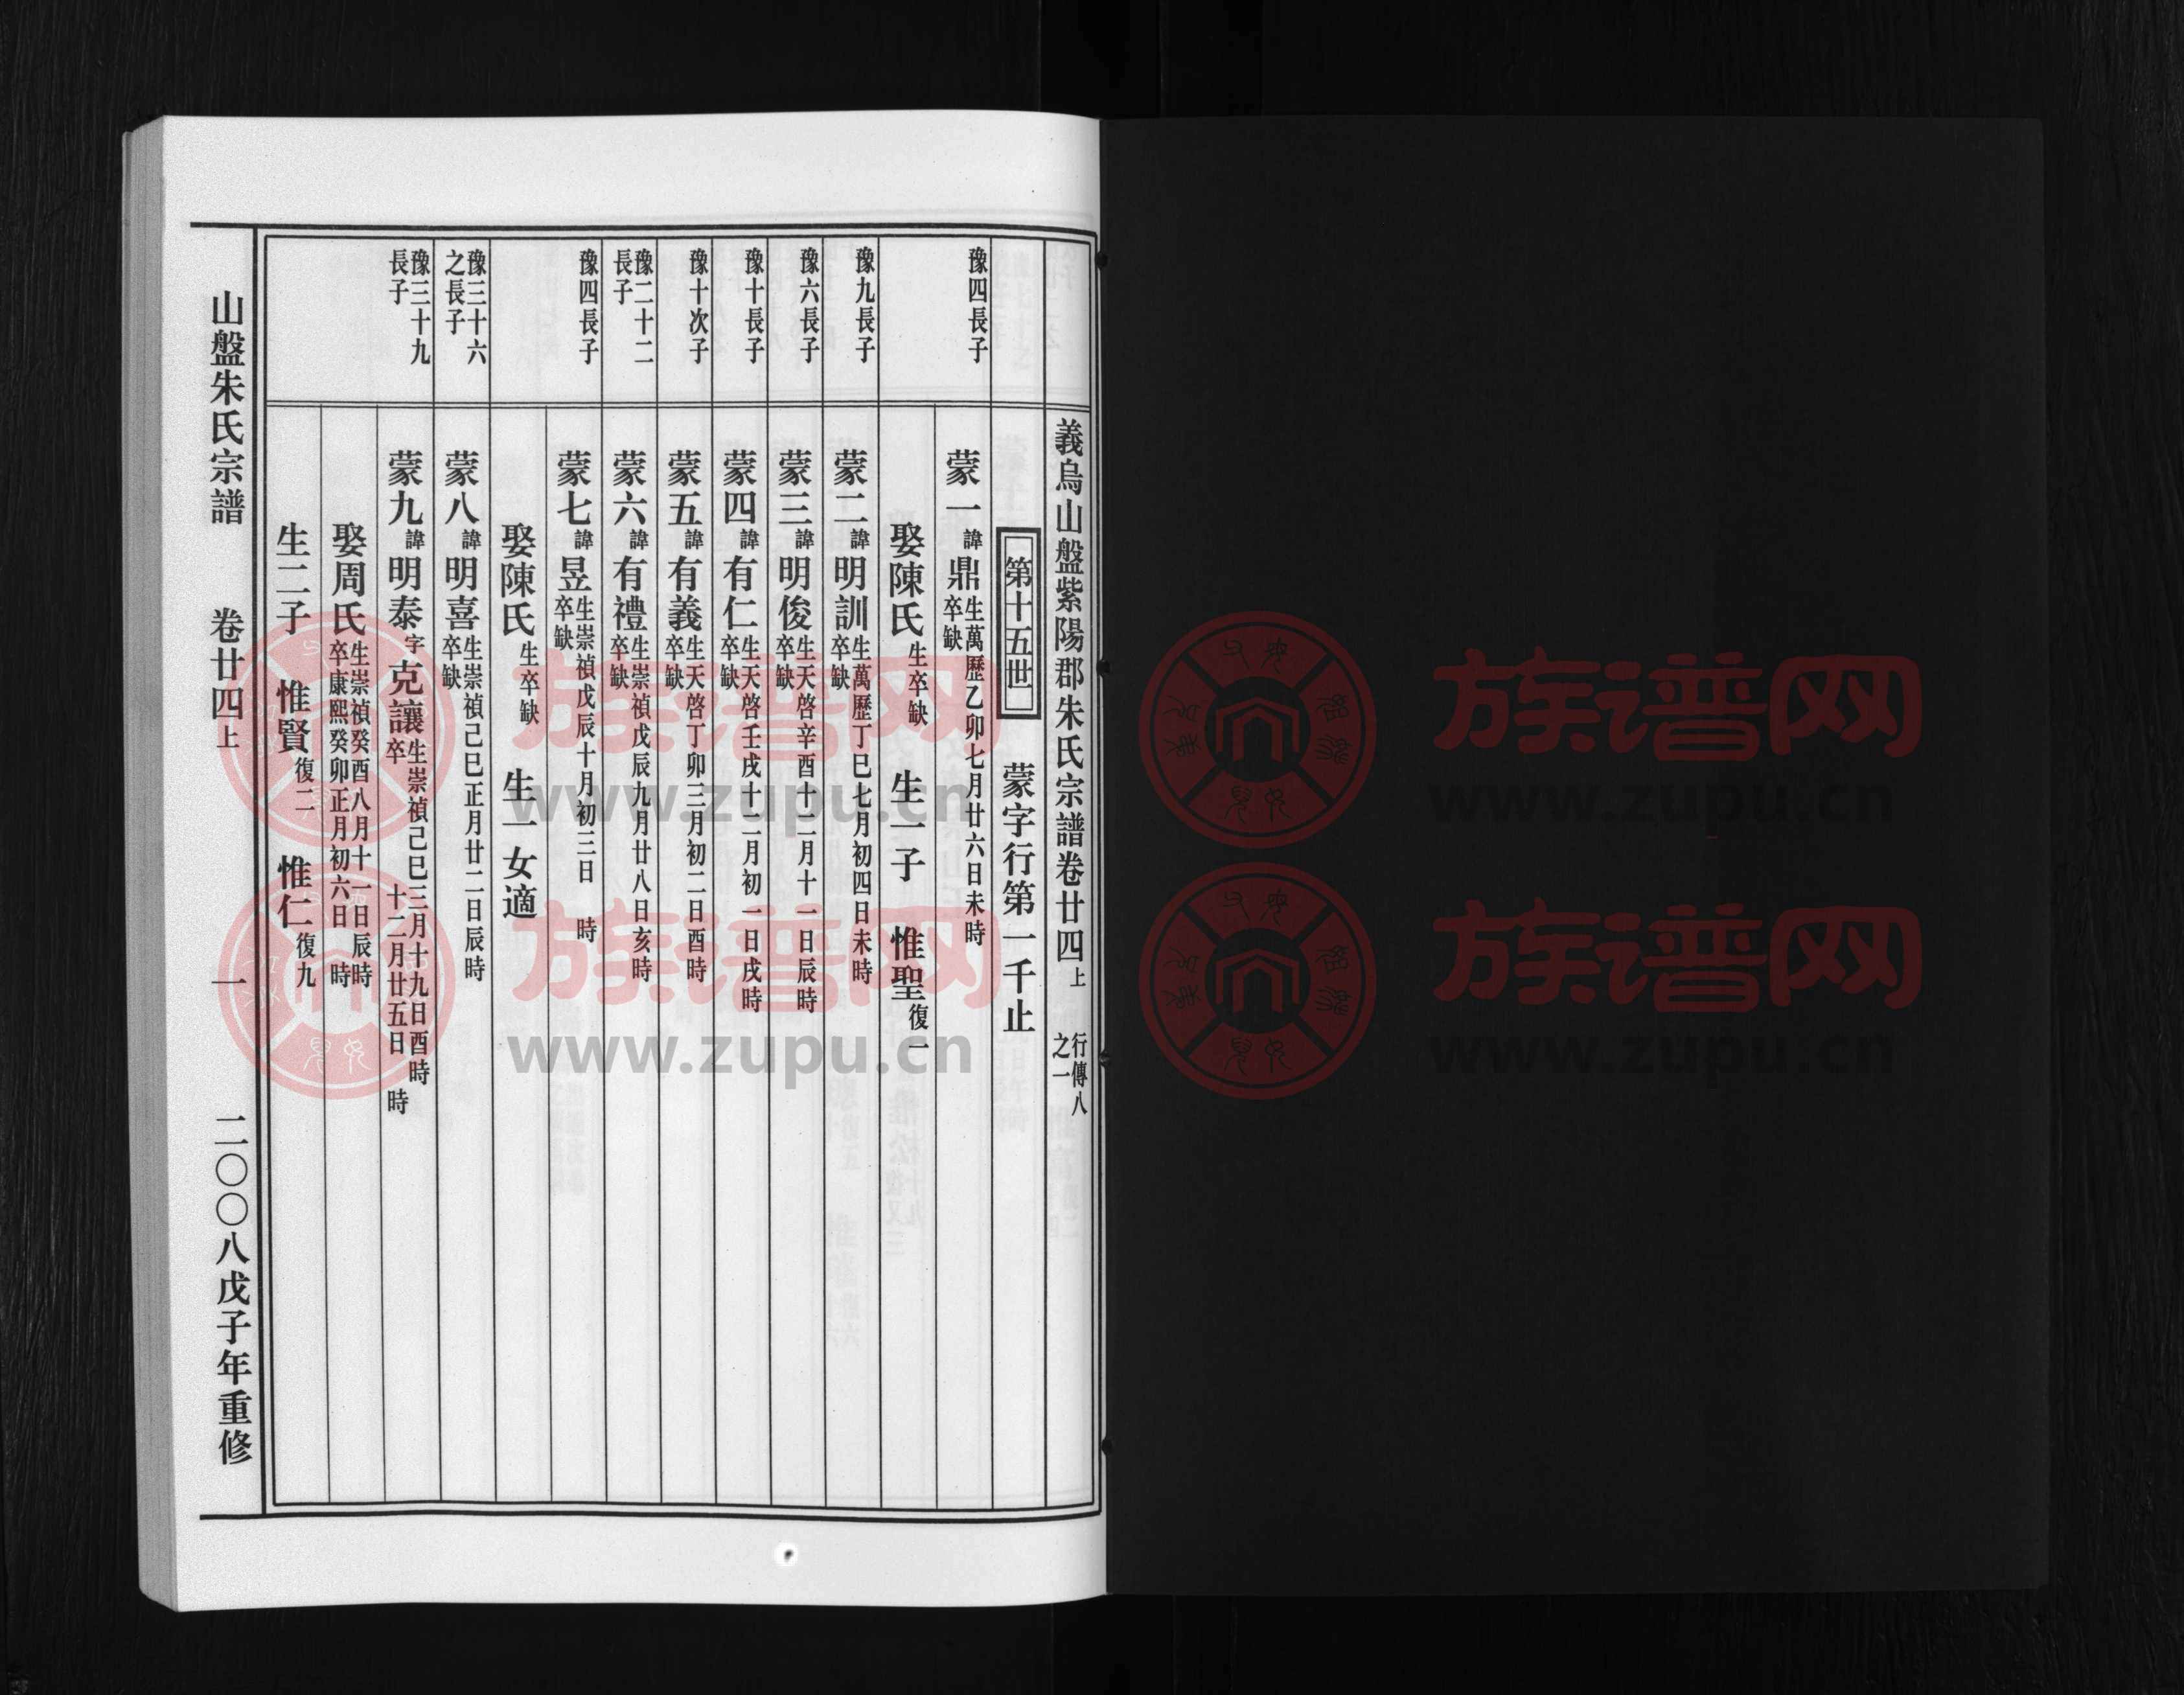 義烏山盤紫陽郡朱氏宗譜卷廿四上 行傳八之一
第十五世 蒙字行第一千止
豫四長子 蒙一諱鼎 生萬歷乙卯七月廿六日未時 卒缺
娶陳氏 生卒缺 生一子 惟聖復一
豫九長子 蒙二諱明訓 生萬歷丁巳七月初四日未時 卒缺
豫六長子 蒙三諱明俊 生天啓辛酉十二月十一日辰時 卒缺
豫十長子 蒙四諱有仁 生天啓壬戌十二月初一日戌時 卒缺
豫十次子 蒙五諱有義 生天啓丁卯三月初二日酉時 卒缺
豫二十二長子 蒙六諱有禮 生崇禎戊辰九月廿八日亥時 卒缺
豫四長子 蒙七諱昱 生崇禎戊辰十月初三日 時 卒缺
娶陳氏 生卒缺 生一女適
豫三十六之長子 蒙八諱明喜 生崇禎己巳正月廿二日辰時 卒缺
豫三十九長子 蒙九諱明泰字克讓 生崇禎己巳三月十九日酉時 卒 十二月廿五日 時
娶周氏 生崇禎癸酉八月十一日辰時 卒康熙癸卯正月初六日 時
生二子 惟賢復二 惟仁復九
山盤朱氏宗譜 卷廿四上 一 二〇〇八戊子年重修
族谱网
www.zupu.cn
族谱网
www.zupu.cn
族谱网
www.zupu.cn
族谱网
www.zupu.cn